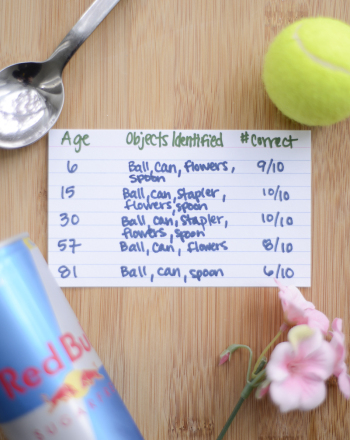 Age Objects Identified # Correct
6 Ball, can, flowers, 9/10
spoon
15 Ball, can, stapler, 10/10
flowers, spoon
30 Ball, can, stapler, 10/10
flowers, spoon
57 Ball, can, flowers 8/10
81 Ball, can, spoon 6/10
Red Bu
SUGARF